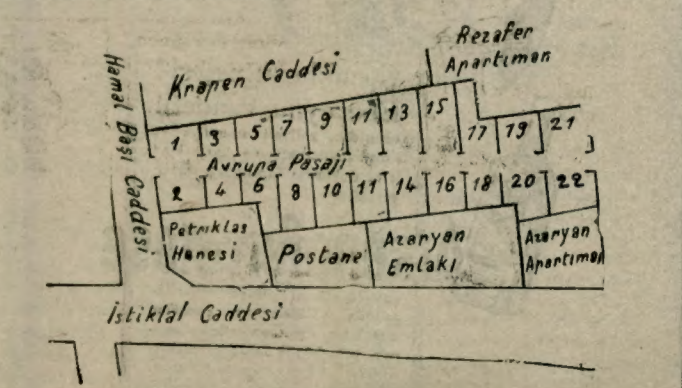 Rezafer
Apartıman
Krapen Caddesi
Hamal Başı Caddesi
1 3 5 7 9 11 13 15 17 19 21
Avrupa Pasajı
2 4 6 8 10 11 14 16 18 20 22
Patriklas
Hanesi
Postane
Azaryan
Emlakı
Azaryan
Apartıman
İstiklal Caddesi